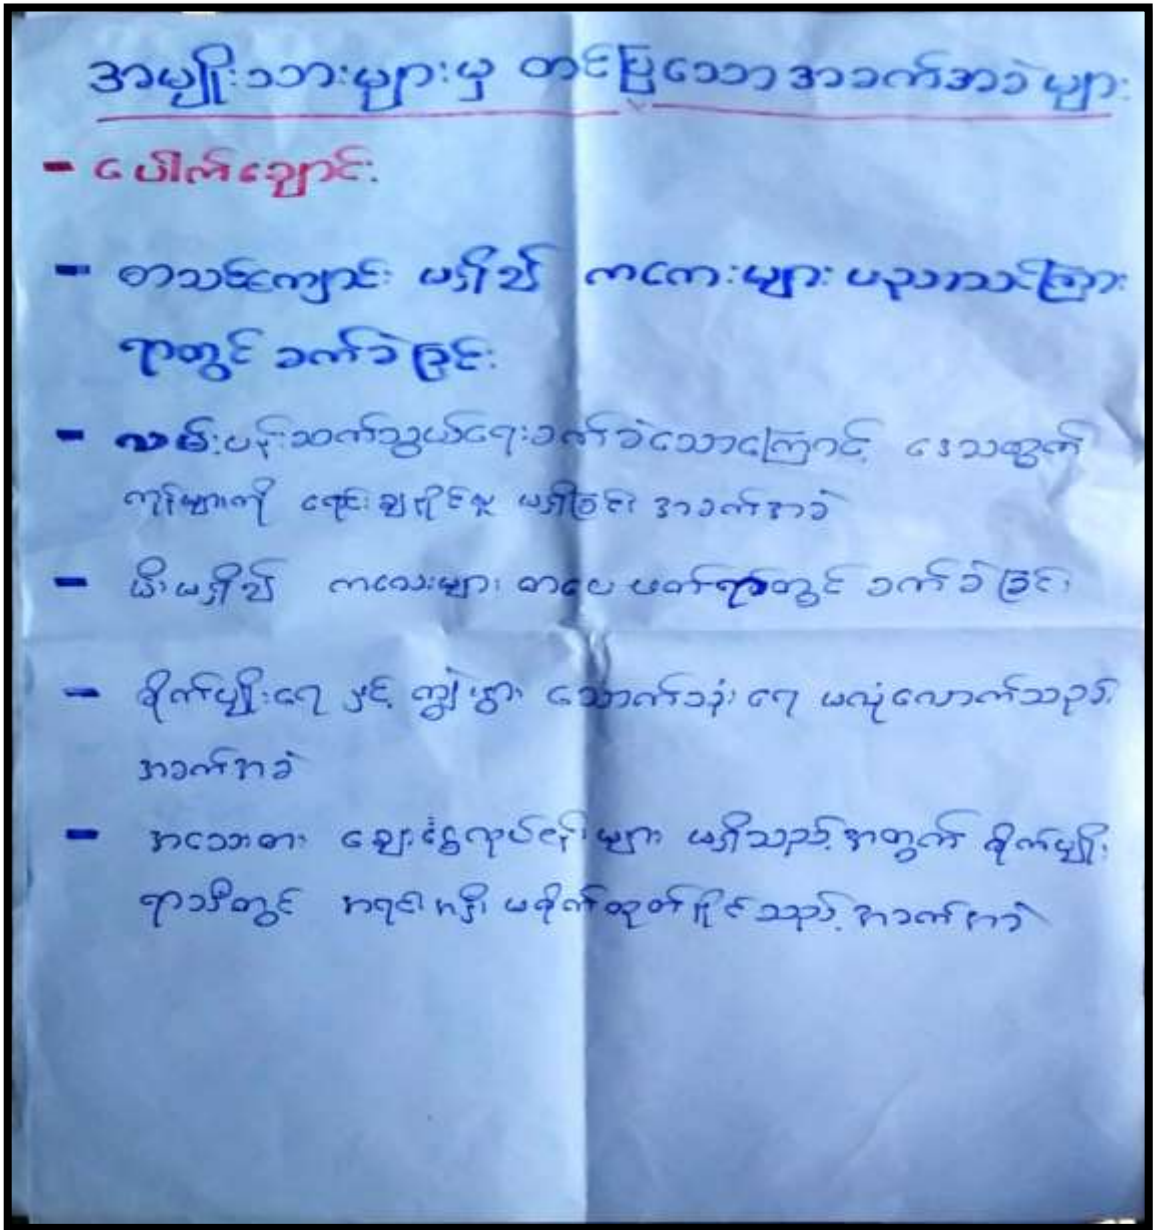 အမျိုးသားများမှ တင်ပြသော အခက်အခဲများ
- ပေါက်ချောင်း
- စာသင်ကျောင်း မရှိ၍ ကလေးများ ပညာသင်ကြား
ရာတွင် ခက်ခဲခြင်း
- လမ်းပန်းဆက်သွယ်ရေးခက်ခဲသောကြောင့် ဒေသထွက်
ကုန်များကို ရောင်းချနိုင်မှု မရှိခြင်း အခက်အခဲ
- မီးမရှိ၍ ကလေးများ စာပေဖတ်ရာတွင် ခက်ခဲခြင်း
- စိုက်ပျိုးရေ နှင့် ကျွဲ၊ နွား သောက်သုံးရေ မလုံလောက်သည့်
အခက်အခဲ
- အသေးစား ချေးငွေလုပ်ငန်းများ မရှိသည့်အတွက် စိုက်ပျိုး
ရာသီတွင် အရင်းအနှီး မစိုက်ထုတ်နိုင်သည့် အခက်အခဲ